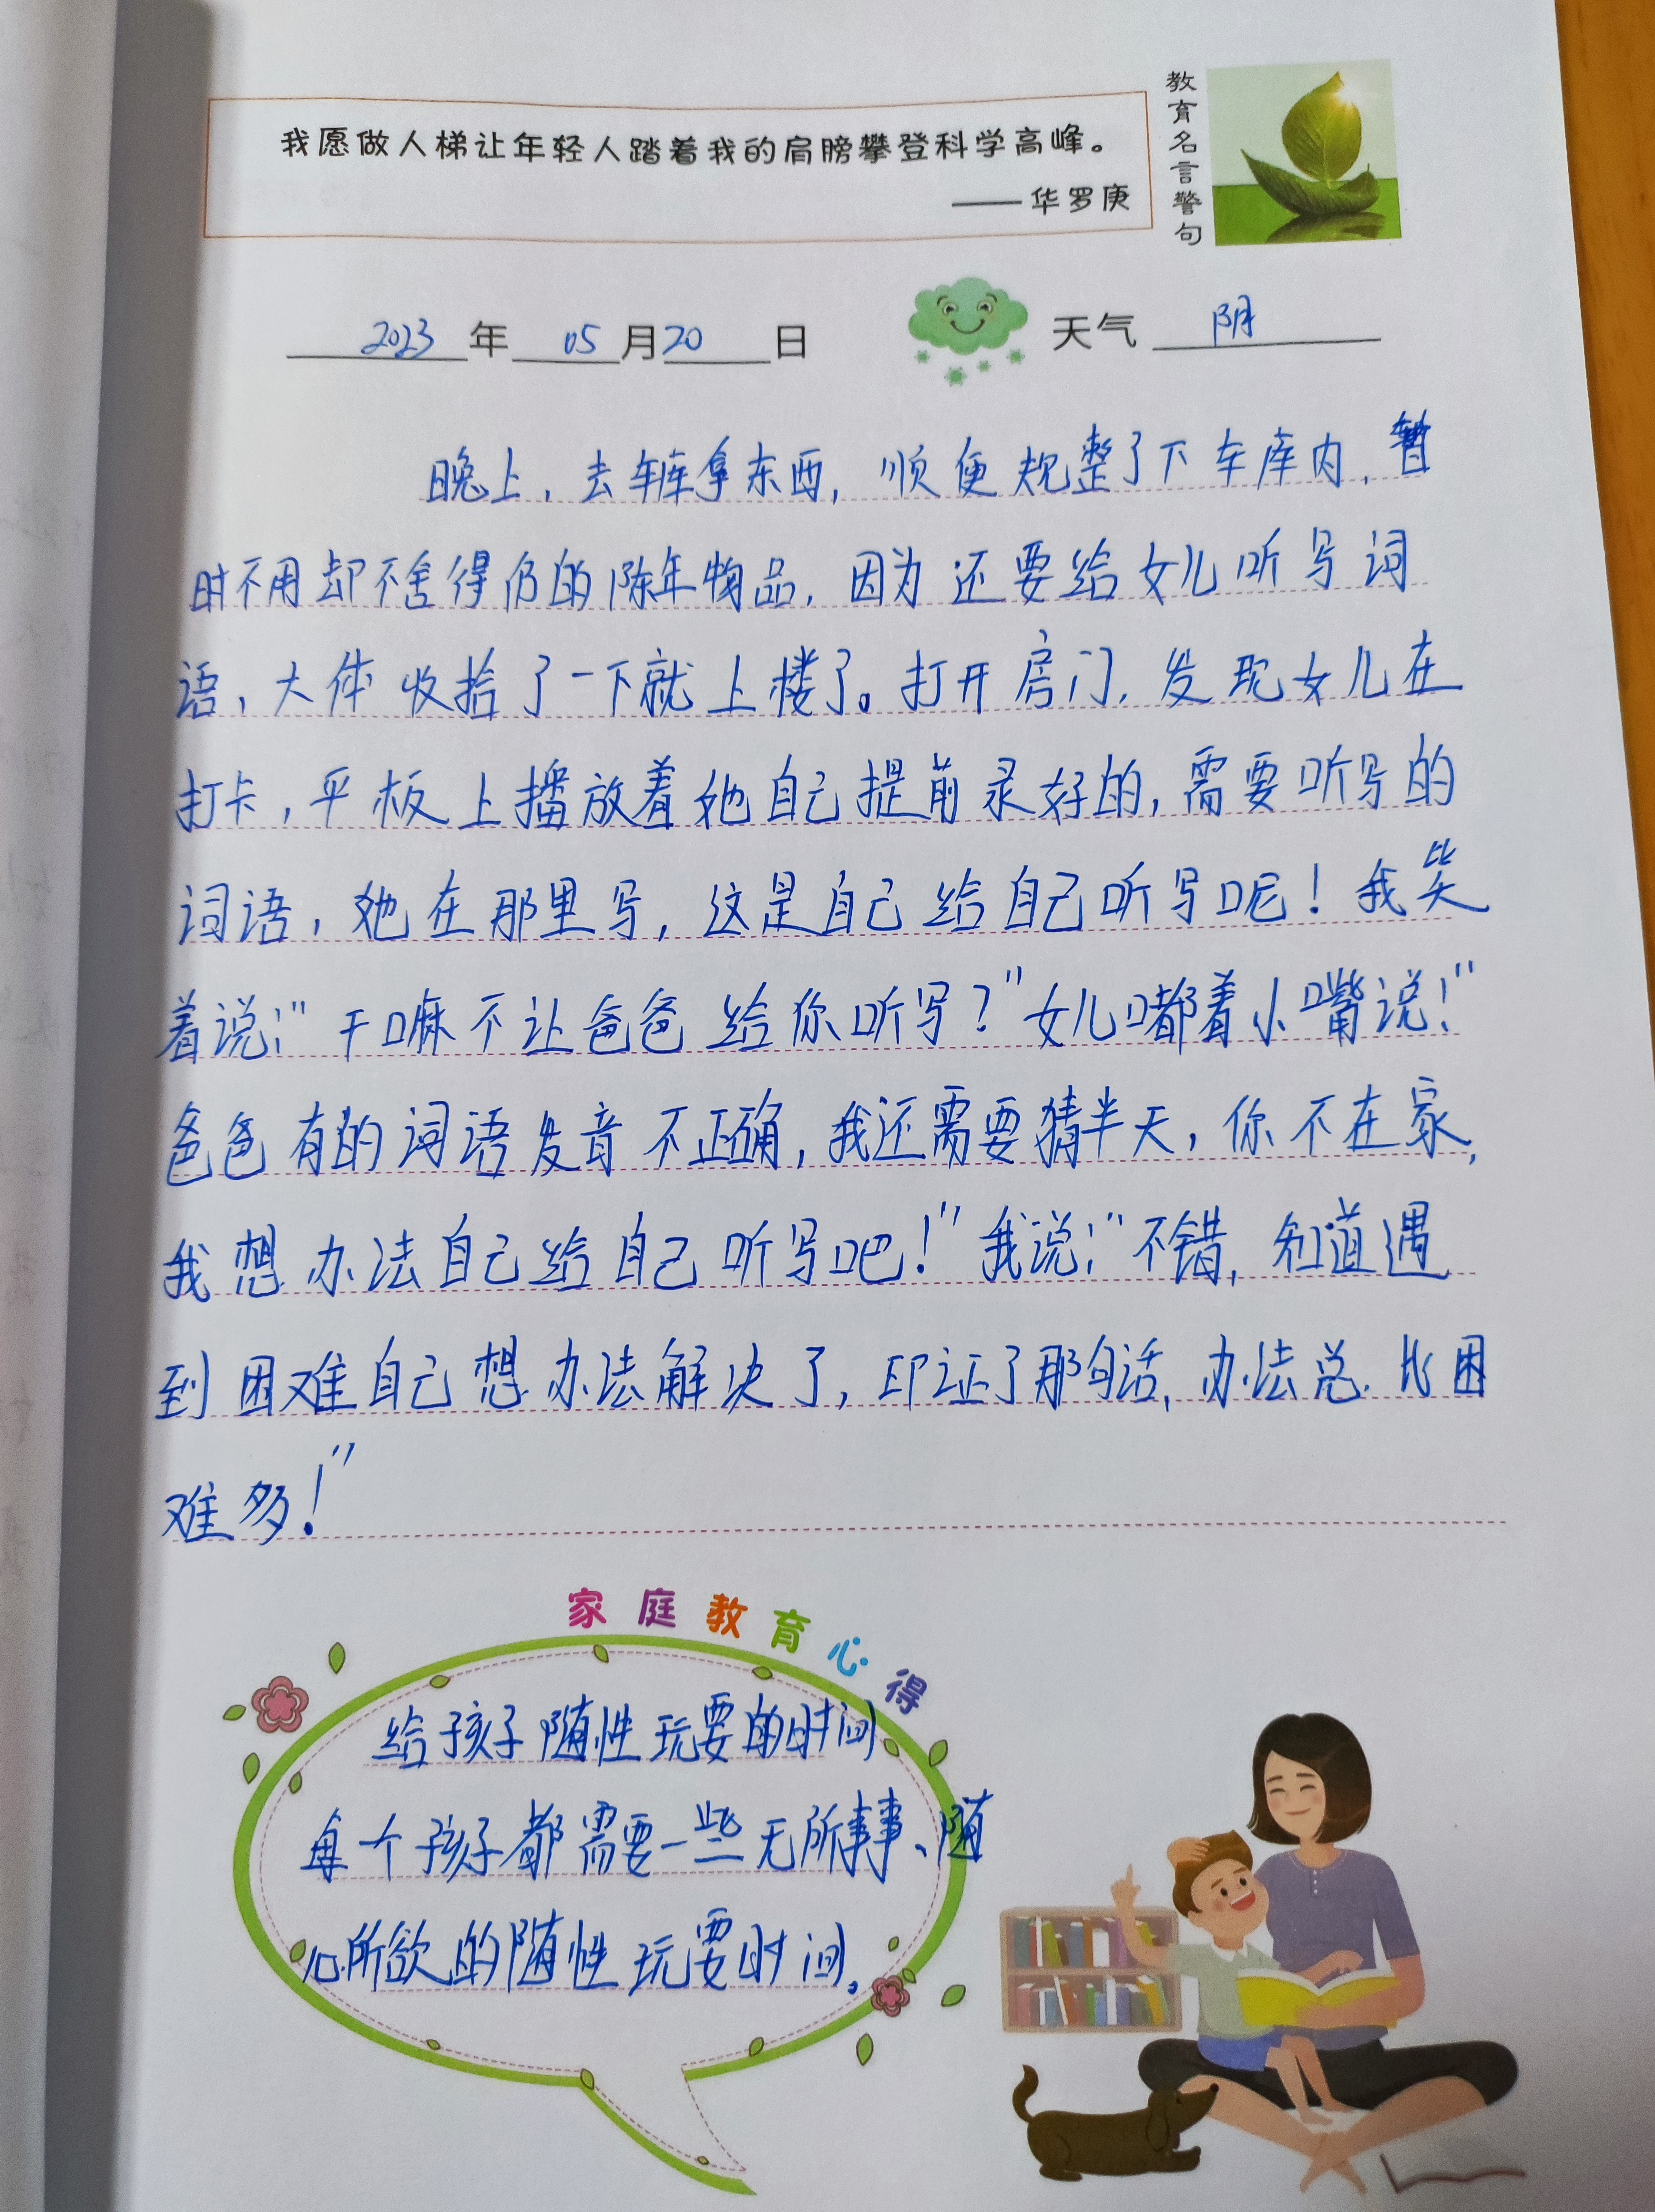 我愿做人梯让年轻人踏着我的肩膀攀登科学高峰。
——华罗庚
教育名言警句
2023年05月20日 天气 阴
晚上，去车库拿东西，顺便规整了下车库内，暂
时不用却不舍得仍的陈年物品，因为还要给女儿听写词
语，大体收拾了一下就上楼了。打开房门，发现女儿在
打卡，平板上播放着她自己提前录好的，需要听写的
词语，她在那里写，这是自己给自己听写呢！我笑
着说：“干嘛不让爸爸给你听写？”女儿嘟着小嘴说：“
爸爸有的词语发音不正确，我还需要猜半天，你不在家，
我想办法自己给自己听写吧！”我说：“不错，知道遇
到困难自己想办法解决了，印证了那句话，办法总比困
难多！”
家庭教育心得
给孩子随性玩耍的时间
每个孩子都需要一些无所事事、随
心所欲的随性玩耍时间。